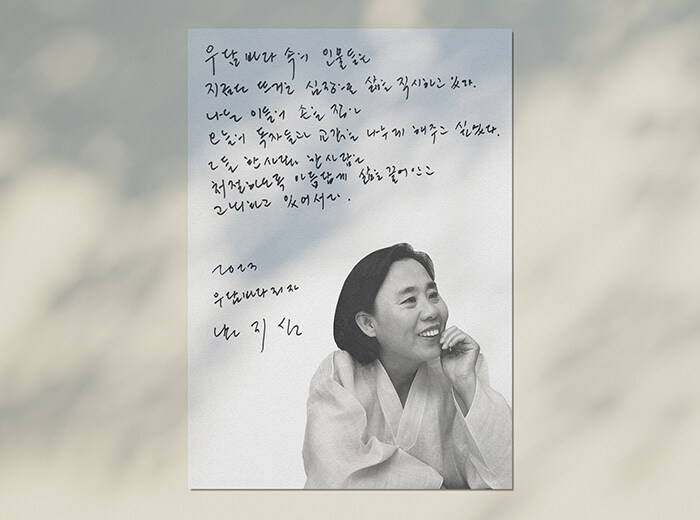 우담바라 속의 인물들은
지금도 뜨거운 심장으로 삶을 직시하고 있다.
나는 이들의 손을 잡고
오늘의 독자들과 교감을 나누게 해주고 싶었다.
그들 한사람 한사람은
처절하도록 아름답게 삶을 끌어안고
고뇌하고 있어서다.
2023
우담바라 저자
남지심